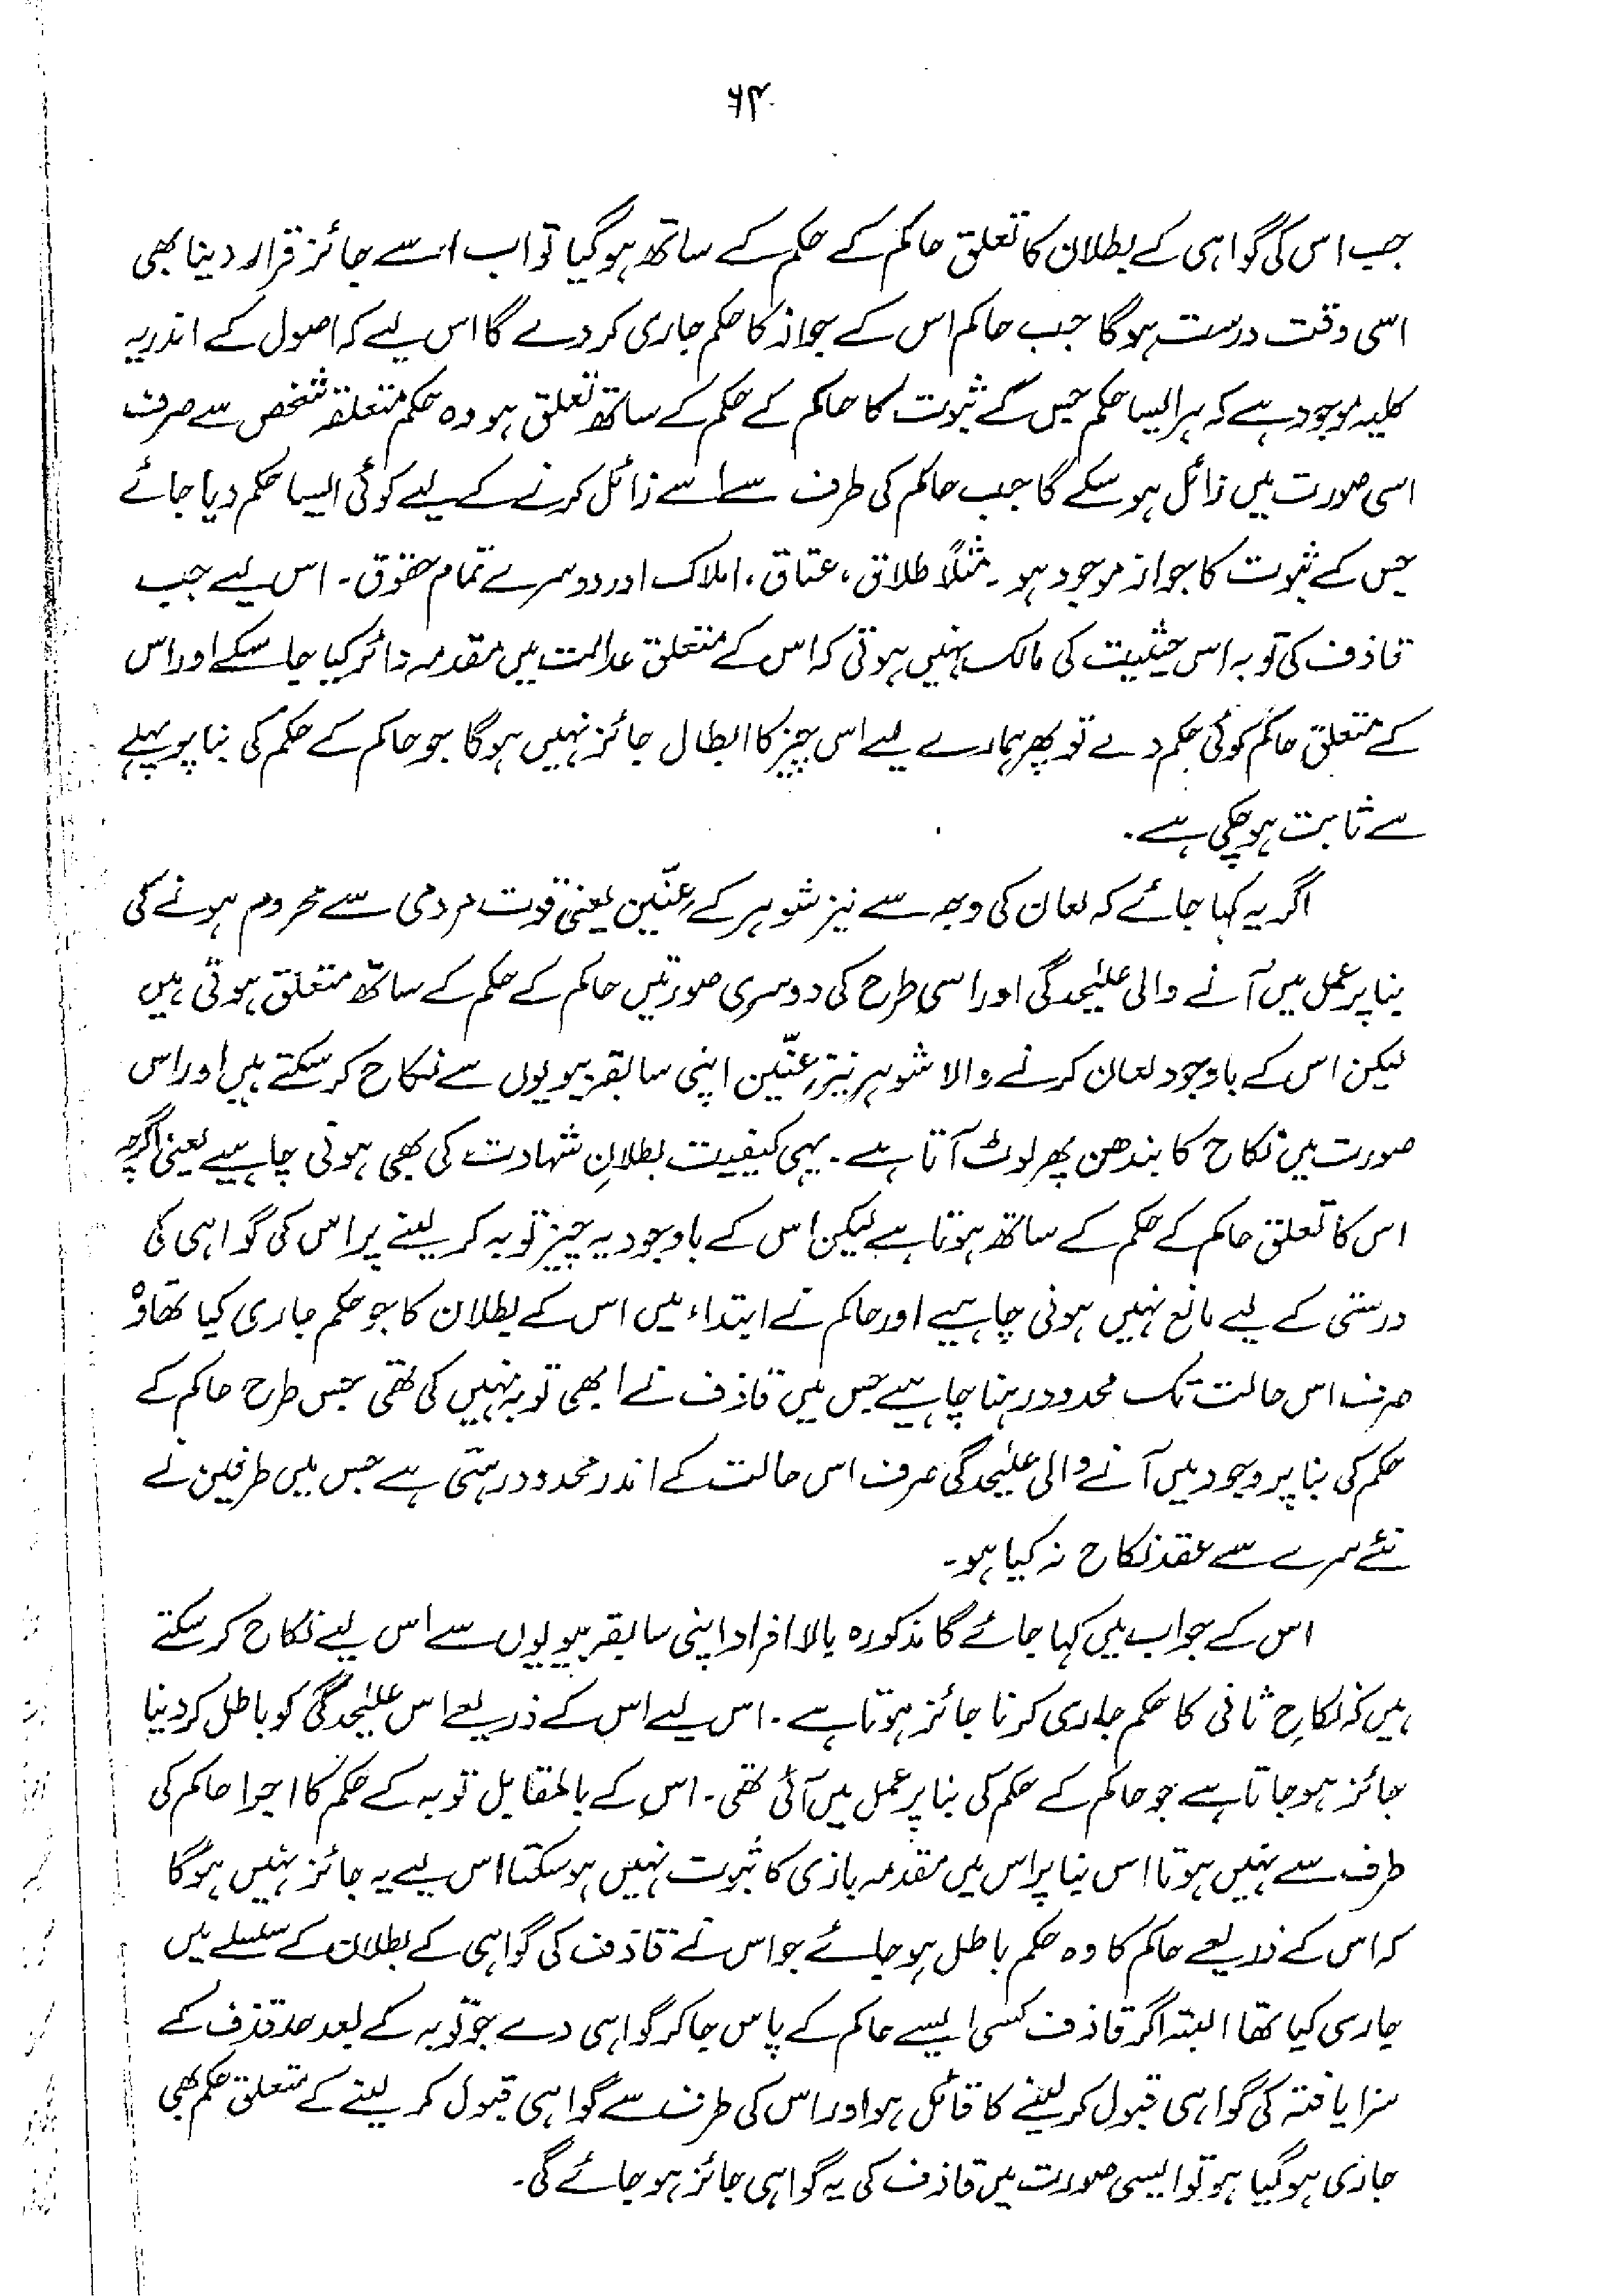 ۶۴
جب اس کی گواہی کے بطلان کا تعلق حاکم کے حکم کے ساتھ ہو گیا تو اب اسے جائز قرار دینا بھی
اسی وقت درست ہوگا جب حاکم اس کے جواز کا حکم جاری کر دے گا اس لیے کہ اصول کے اندر یہ
کلیہ موجود ہے کہ ہر ایسا حکم جس کے ثبوت کا حاکم کے حکم کے ساتھ تعلق ہو وہ حکم متعلقہ شخص سے صرف
اسی صورت میں زائل ہو سکے گا جب حاکم کی طرف سے اسے زائل کرنے کے لیے کوئی ایسا حکم دیا جائے
جس کے ثبوت کا جواز موجود ہو۔ مثلاً طلاق، عتاق، املاک اور دوسرے تمام حقوق۔ اس لیے جب
قاذف کی توبہ اس حیثیت کی مالک نہیں ہوتی کہ اس کے متعلق عدالت میں مقدمہ دائر کیا جا سکے اور اس
کے متعلق حاکم کوئی حکم دے تو پھر ہمارے لیے اس چیز کا ابطال جائز نہیں ہوگا جو حاکم کے حکم کی بنا پر پہلے
سے ثابت ہو چکی ہے۔
اگر یہ کہا جائے کہ لعان کی وجہ سے نیز شوہر کے عنّین یعنی قوت مردمی سے محروم ہونے کی
بنا پر عمل میں آنے والی علیٰحدگی اور اسی طرح کی دوسری صورتیں حاکم کے حکم کے ساتھ متعلق ہوتی ہیں
لیکن اس کے باوجود لعان کرنے والا شوہر نیز عنّین اپنی سابقہ بیویوں سے نکاح کر سکتے ہیں اور اس
صورت میں نکاح کا بندھن پھر لوٹ آتا ہے۔ یہی کیفیت بطلانِ شہادت کی بھی ہونی چاہیے یعنی اگرچہ
اس کا تعلق حاکم کے حکم کے ساتھ ہوتا ہے لیکن اس کے باوجود یہ چیز توبہ کر لینے پر اس کی گواہی کی
درستی کے لیے مانع نہیں ہونی چاہیے اور حاکم نے ابتداء میں اس کے بطلان کا جو حکم جاری کیا تھا وہ
صرف اس حالت تک محدود رہنا چاہیے جس میں قاذف نے ابھی توبہ نہیں کی تھی جس طرح حاکم کے
حکم کی بنا پر وجود میں آنے والی علیٰحدگی صرف اس حالت کے اندر محدود رہتی ہے جس میں طرفین نے
نئے سرے سے عقد نکاح نہ کیا ہو۔
اس کے جواب میں کہا جائے گا مذکورہ بالا افراد اپنی سابقہ بیویوں سے اس لیے نکاح کر سکتے
ہیں کہ نکاحِ ثانی کا حکم جاری کرنا جائز ہوتا ہے۔ اس لیے اس کے ذریعے اس علیٰحدگی کو باطل کر دینا
جائز ہو جاتا ہے جو حاکم کے حکم کی بنا پر عمل میں آئی تھی۔ اس کے بالمقابل توبہ کے حکم کا اجرا حاکم کی
طرف سے نہیں ہوتا اس بنا پر اس میں مقدمہ بازی کا ثبوت نہیں ہو سکتا اس لیے یہ جائز نہیں ہوگا
کہ اس کے ذریعے حاکم کا وہ حکم باطل ہو جائے جو اس نے قاذف کی گواہی کے بطلان کے سلسلے میں
جاری کیا تھا البتہ اگر قاذف کسی ایسے حاکم کے پاس جا کر گواہی دے جو توبہ کے بعد حد قذف کے
سزا یافتہ کی گواہی قبول کر لینے کا قائل ہو اور اس کی طرف سے گواہی قبول کر لینے کے متعلق حکم بھی
جاری ہو گیا ہو تو ایسی صورت میں قاذف کی یہ گواہی جائز ہو جائے گی۔